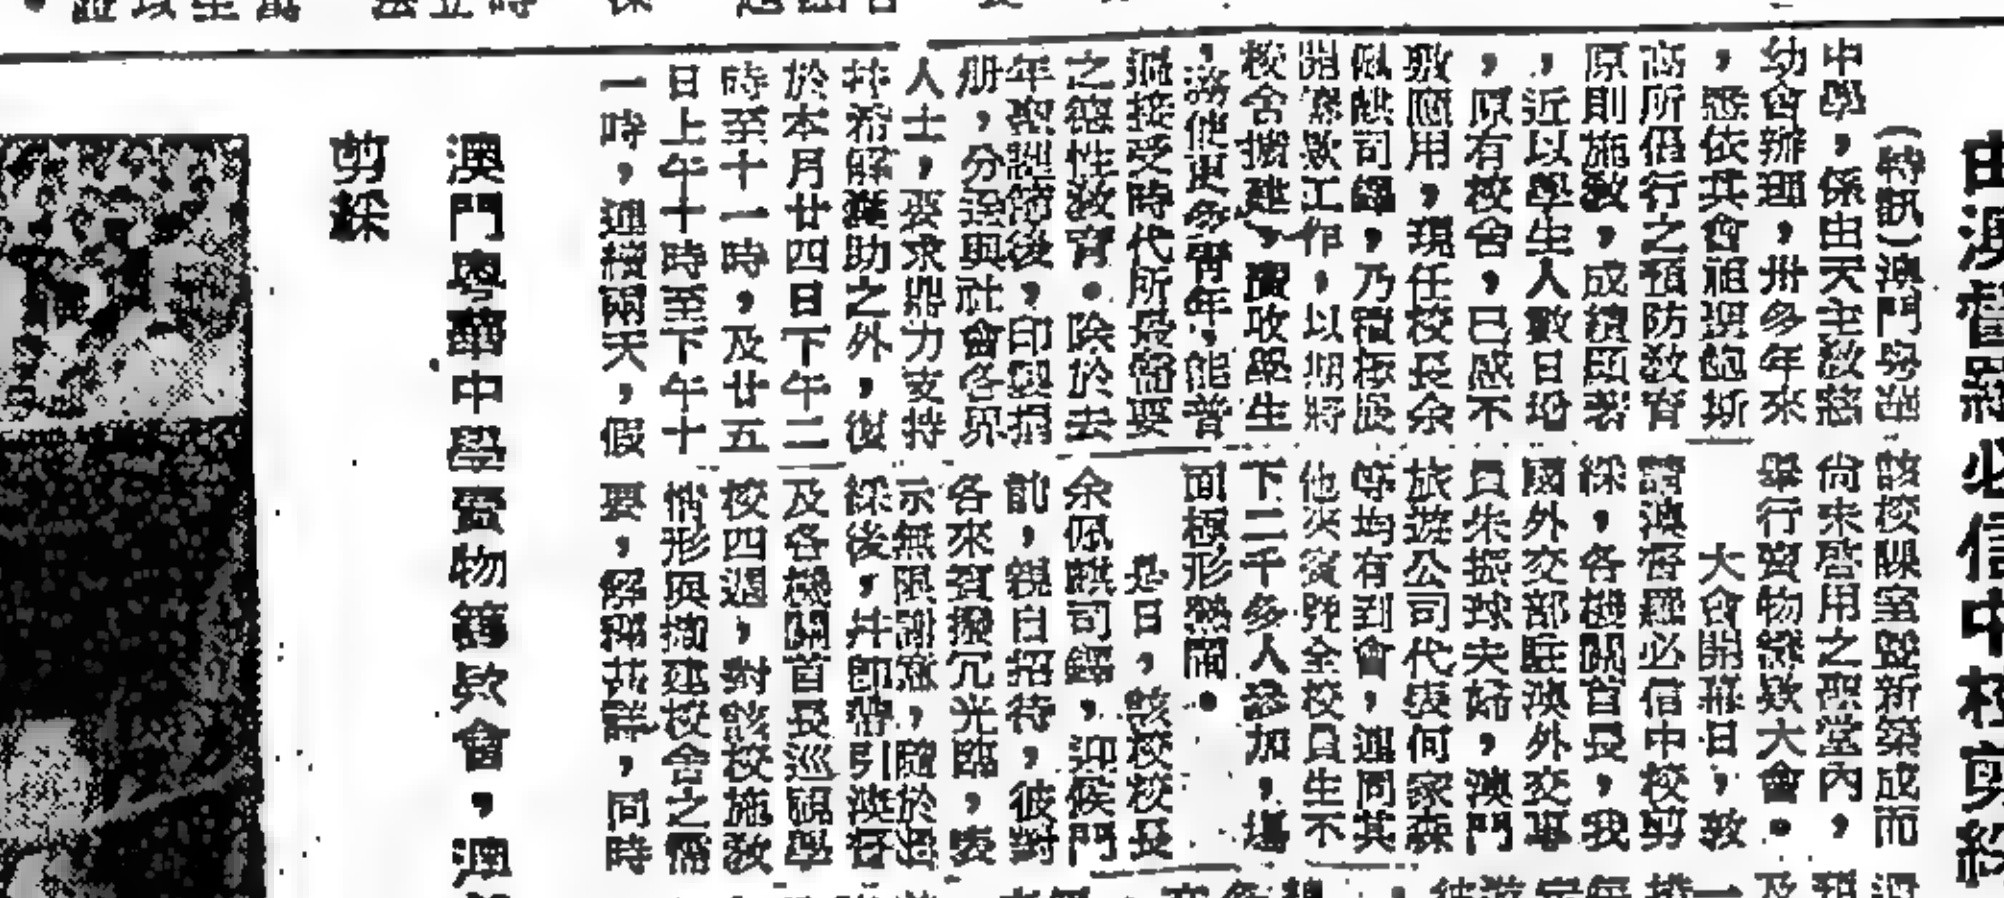 由澳督羅必信中校剪綵
(特訊)澳門粵華
中學，係由天主敎慈
幼會辦理，卅多年來
，悉依其會祖鮑斯
高所倡行之預防敎育
原則施敎，成績顯著
，近以學生人數日增
，原有校舍，已感不
敷應用，現任校長余
佩麒司鐸，乃積極展
開籌欵工作，以期將
校舍擴建，廣收學生
，務使更多靑年，能普
遍接受時代所最需要
之德性敎育。除於去
年聖誕節後，印製捐
册，分送與社會各界
人士，要求鼎力支持
幷希解囊助之外，復
於本月廿四日下午二
時至十一時，及廿五
日上午十時至下午十
一時，連續兩天，假
該校課室暨新築成而
尚未啓用之聖堂內，
舉行賣物籌欵大會。
大會開幕日，敦
請澳督羅必信中校剪
綵，各機關首長，我
國外交部駐澳外交專
員朱振球夫婦，澳門
旅遊公司代表何家森
等均有到會，連同其
他來賓暨全校員生不
下二千多人參加，塲
面極形熱鬧。
是日，該校校長
余佩麒司鐸，迎候門
前，親自招待，彼對
各來賓撥冗光臨，表
示無限謝意，隨於剪
綵後，幷卽帶引澳督
及各機關首長巡視學
校四週，對該校施敎
情形與擴建校舍之需
要，解釋其詳，同時
澳門粵華中學賣物籌欵會，澳
剪綵